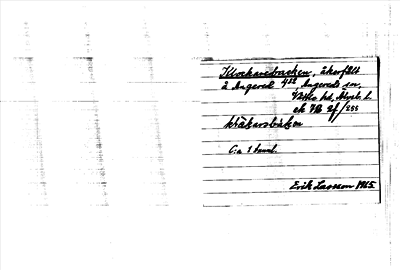 Klockarebacken, åkerfält
å Angered 4³², Angereds sn,
Vättle hd, Älvsb. l.
ek 7B 2f/255
klåkarsbakən
C:a 1 tunnl.
Erik Larsson 1965